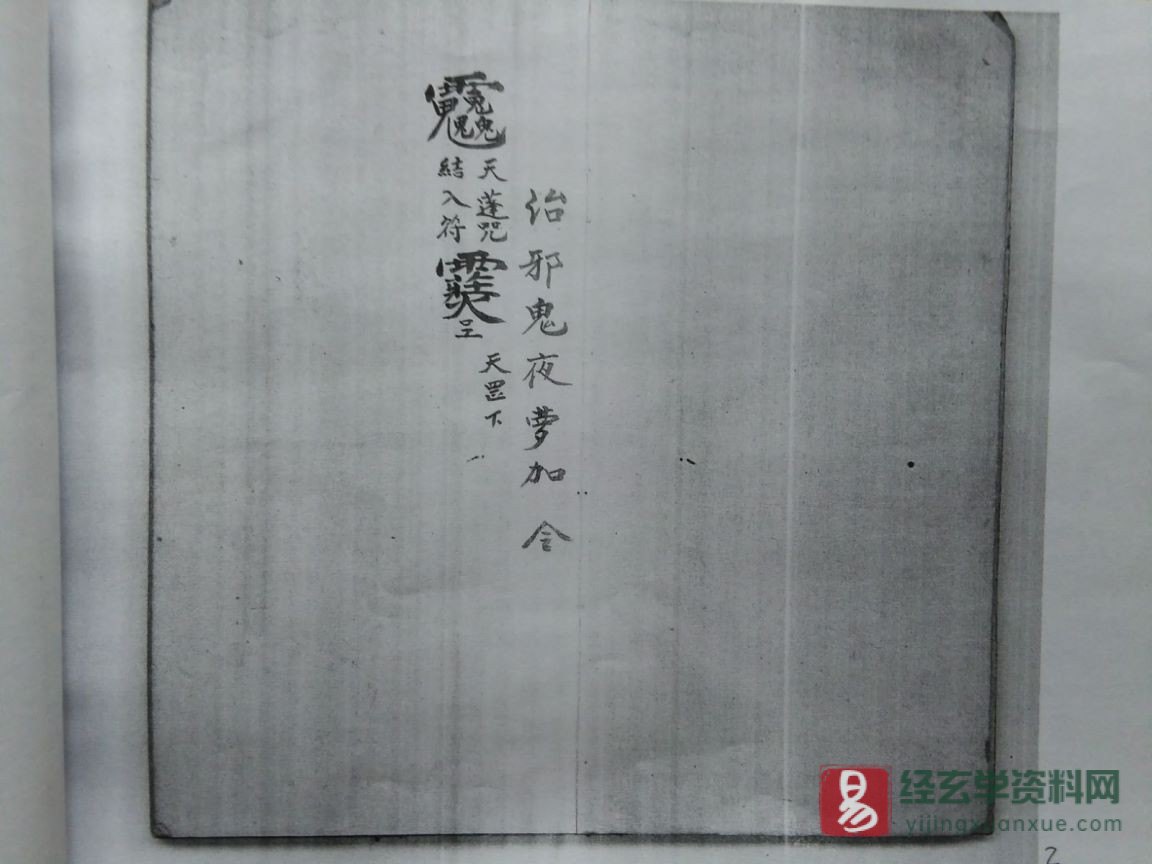 治邪鬼夜夢加 令
天蓬咒
結入符
天罡下
易 经玄学资料网
yijingxuanxue.com
2